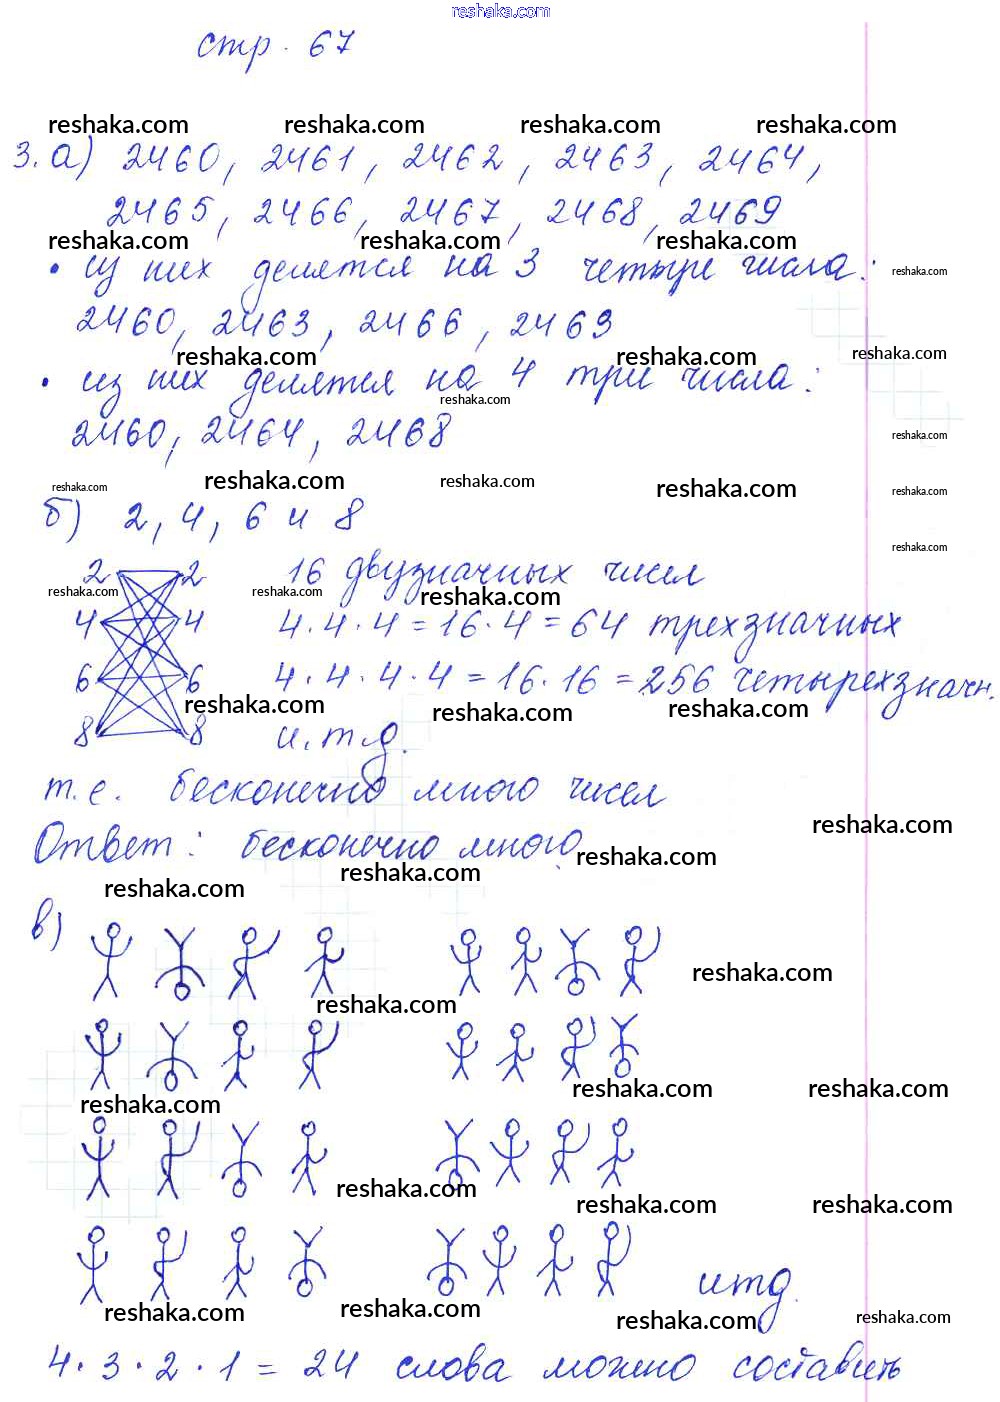 reshaka.com
стр. 67
reshaka.com reshaka.com reshaka.com reshaka.com
3. а) 2460, 2461, 2462, 2463, 2464,
2465, 2466, 2467, 2468, 2469
reshaka.com reshaka.com reshaka.com
• из них делятся на 3 четыре числа: reshaka.com
2460, 2463, 2466, 2469
reshaka.com reshaka.com reshaka.com
• из них делятся на 4 три числа:
reshaka.com
2460, 2464, 2468 reshaka.com
reshaka.com reshaka.com reshaka.com reshaka.com reshaka.com
б) 2, 4, 6 и 8
reshaka.com
2 2 16 двузначных чисел
reshaka.com reshaka.com reshaka.com
4 4 4·4·4=16·4=64 трехзначных
6 6 4·4·4·4=16·16=256 четырехзначн.
reshaka.com reshaka.com reshaka.com
8 8 и.т.д.
т.е. бесконечно много чисел
reshaka.com
Ответ: бесконечно много
reshaka.com reshaka.com reshaka.com
в)
reshaka.com
reshaka.com
reshaka.com reshaka.com
reshaka.com
reshaka.com
reshaka.com reshaka.com
итд.
reshaka.com reshaka.com reshaka.com reshaka.com
4·3·2·1=24 слова можно составить